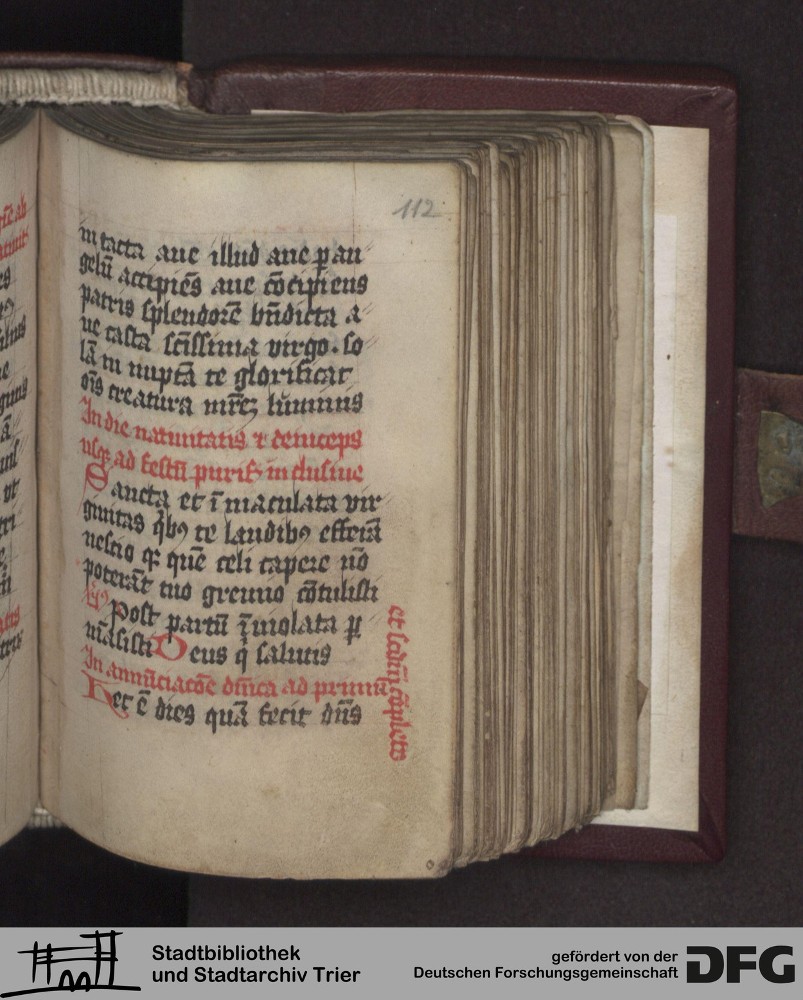 112
intacta aue illud aue p̱ an
gelū accipiēs aue cōcipiens
patris splendorē bn̄dicta a
ue casta sc̄issima virgo. so
lā in nuptā te glorificat
oīs creatura mr̄eꝫ luminis
In die natiuitatis ⁊ deinceps
usqꝫ ad festū purif. inclusiue
Sancta et īmaculata vir
ginitas qͥbꝰ te laudibꝰ efferā
nescio qꝛ quē celi capere nō
poterāt tuo gremio cōtulisti
Post partū īuiolata ꝑ
māsisti Deus qͥ salutis
In annūciacōe dn̄ica ad primū
et scdm̄ cōpleto
Hec ē dies quā fecit dn̄s
Stadtbibliothek
und Stadtarchiv Trier
gefördert von der
Deutschen Forschungsgemeinschaft
DFG